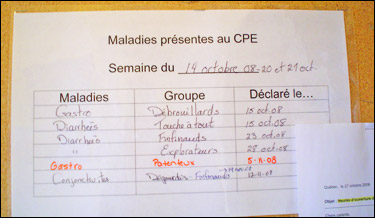 Maladies présentes au CPE
Semaine du 14 octobre 08-20 et 27 oct.
Maladies Groupe Déclaré le...
Gastro Débrouillards 15 oct 08
Diarrheis Touche à tout 15 oct 08
Diarrheis Finfinauds 23 oct 08
" Explorateurs 28 oct 08
Gastro Potenteux 5-11-08
Conjonctivite Dégourdis - Finfinauds 12-11-08
Québec, le 17 octobre 2008
Objet :
Chers parents,